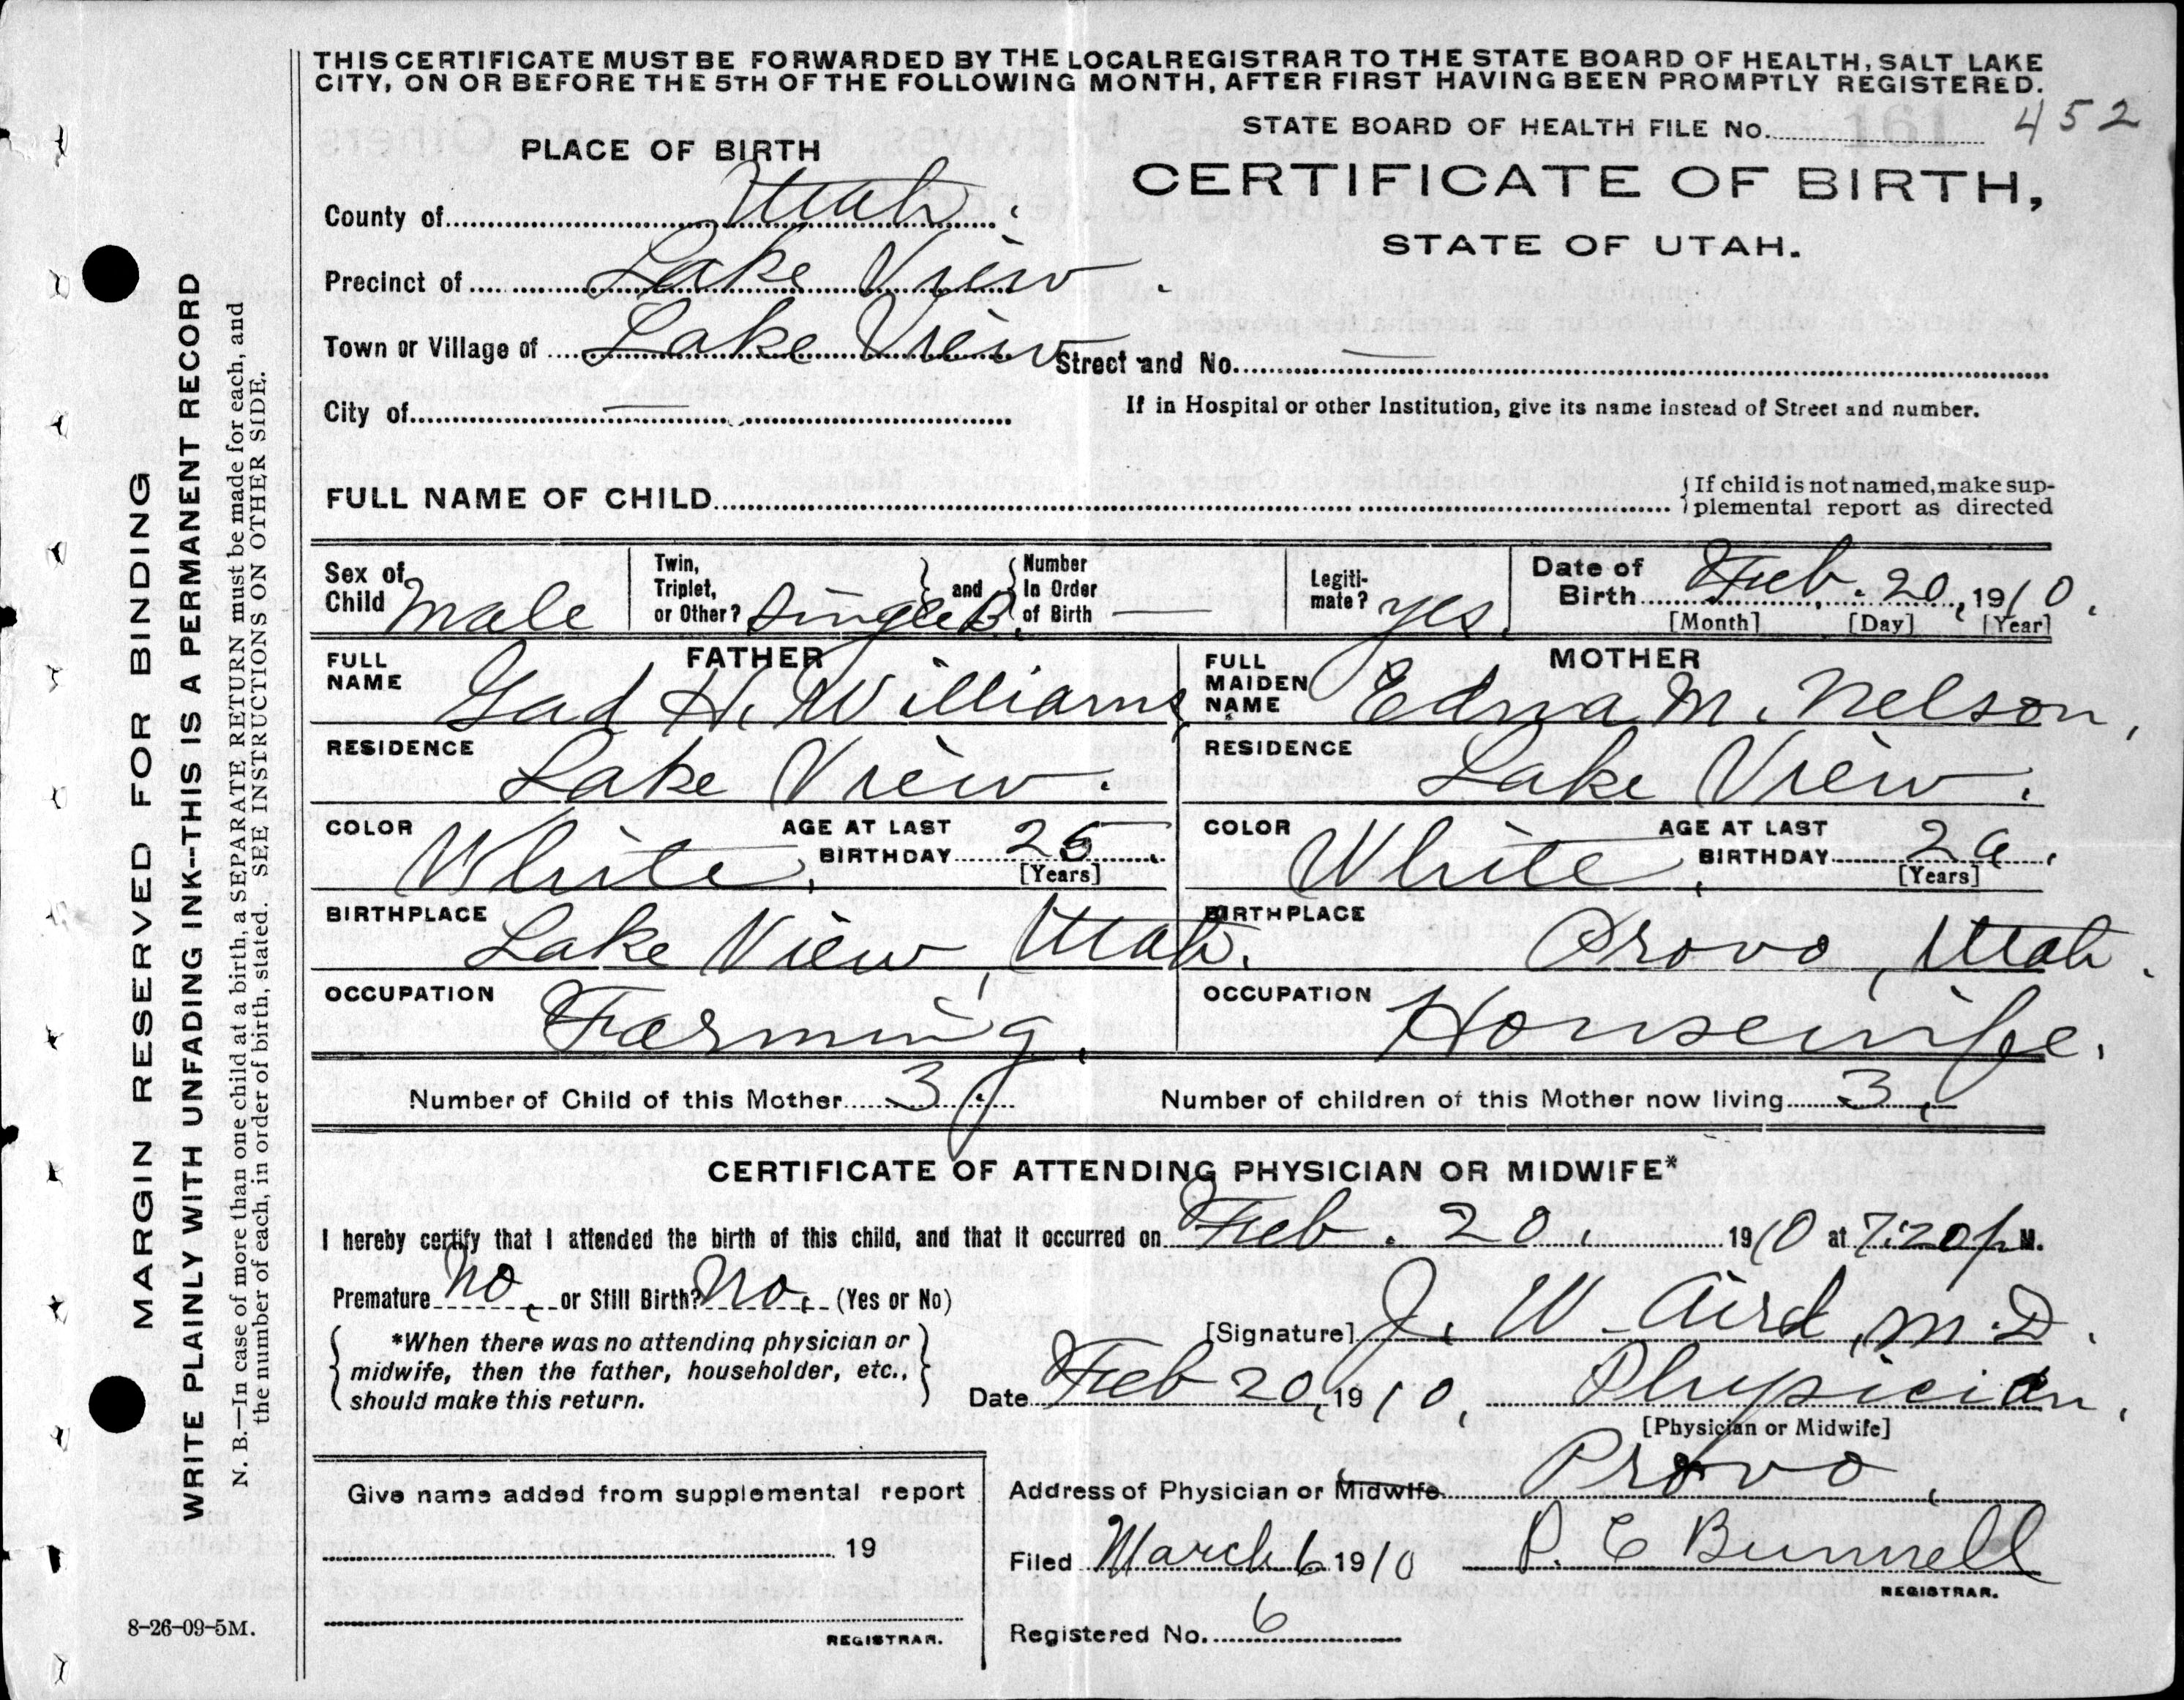 THIS CERTIFICATE MUST BE FORWARDED BY THE LOCAL REGISTRAR TO THE STATE BOARD OF HEALTH, SALT LAKE
CITY, ON OR BEFORE THE 5TH OF THE FOLLOWING MONTH, AFTER FIRST HAVING BEEN PROMPTLY REGISTERED.
STATE BOARD OF HEALTH FILE No. 161 452
PLACE OF BIRTH
CERTIFICATE OF BIRTH,
STATE OF UTAH.
County of Utah.
Precinct of Lake View.
Town or Village of Lake View Street and No. —
City of —
If in Hospital or other Institution, give its name instead of Street and number.
FULL NAME OF CHILD
{If child is not named, make sup-
plemental report as directed
Sex of Child Male
Twin, Triplet, or Other? Single B. } and { Number In Order of Birth —
Legiti-mate? Yes.
Date of Birth Feb. 20, 1910.
[Month] [Day] [Year]
FATHER
FULL NAME Gad H. Williams,
RESIDENCE Lake View.
COLOR White, AGE AT LAST BIRTHDAY 25.
[Years]
BIRTHPLACE Lake View, Utah.
OCCUPATION Farming.
MOTHER
FULL MAIDEN NAME Edna M. Nelson,
RESIDENCE Lake View.
COLOR White, AGE AT LAST BIRTHDAY
[Years]
BIRTHPLACE Provo, Utah.
OCCUPATION Housewife.
Number of Child of this Mother 3.
Number of children of this Mother now living 3,
CERTIFICATE OF ATTENDING PHYSICIAN OR MIDWIFE*
I hereby certify that I attended the birth of this child, and that it occurred on Feb. 20, 1910 at 7:20 p M.
Premature No, or Still Birth? No, (Yes or No)
*When there was no attending physician or
midwife, then the father, householder, etc.,
should make this return.
[Signature] J. W. Aird, M.D.
Date Feb 20, 1910, Physician,
[Physician or Midwife]
Address of Physician or Midwife Provo,
Filed March 6 1910 P. C Bunnell
REGISTRAR.
Registered No. 6
Give name added from supplemental report
19
REGISTRAR.
8-26-09-5M.
MARGIN RESERVED FOR BINDING
WRITE PLAINLY WITH UNFADING INK--THIS IS A PERMANENT RECORD
N. B.—In case of more than one child at a birth, a SEPARATE RETURN must be made for each, and
the number of each, in order of birth, stated. SEE INSTRUCTIONS ON OTHER SIDE.